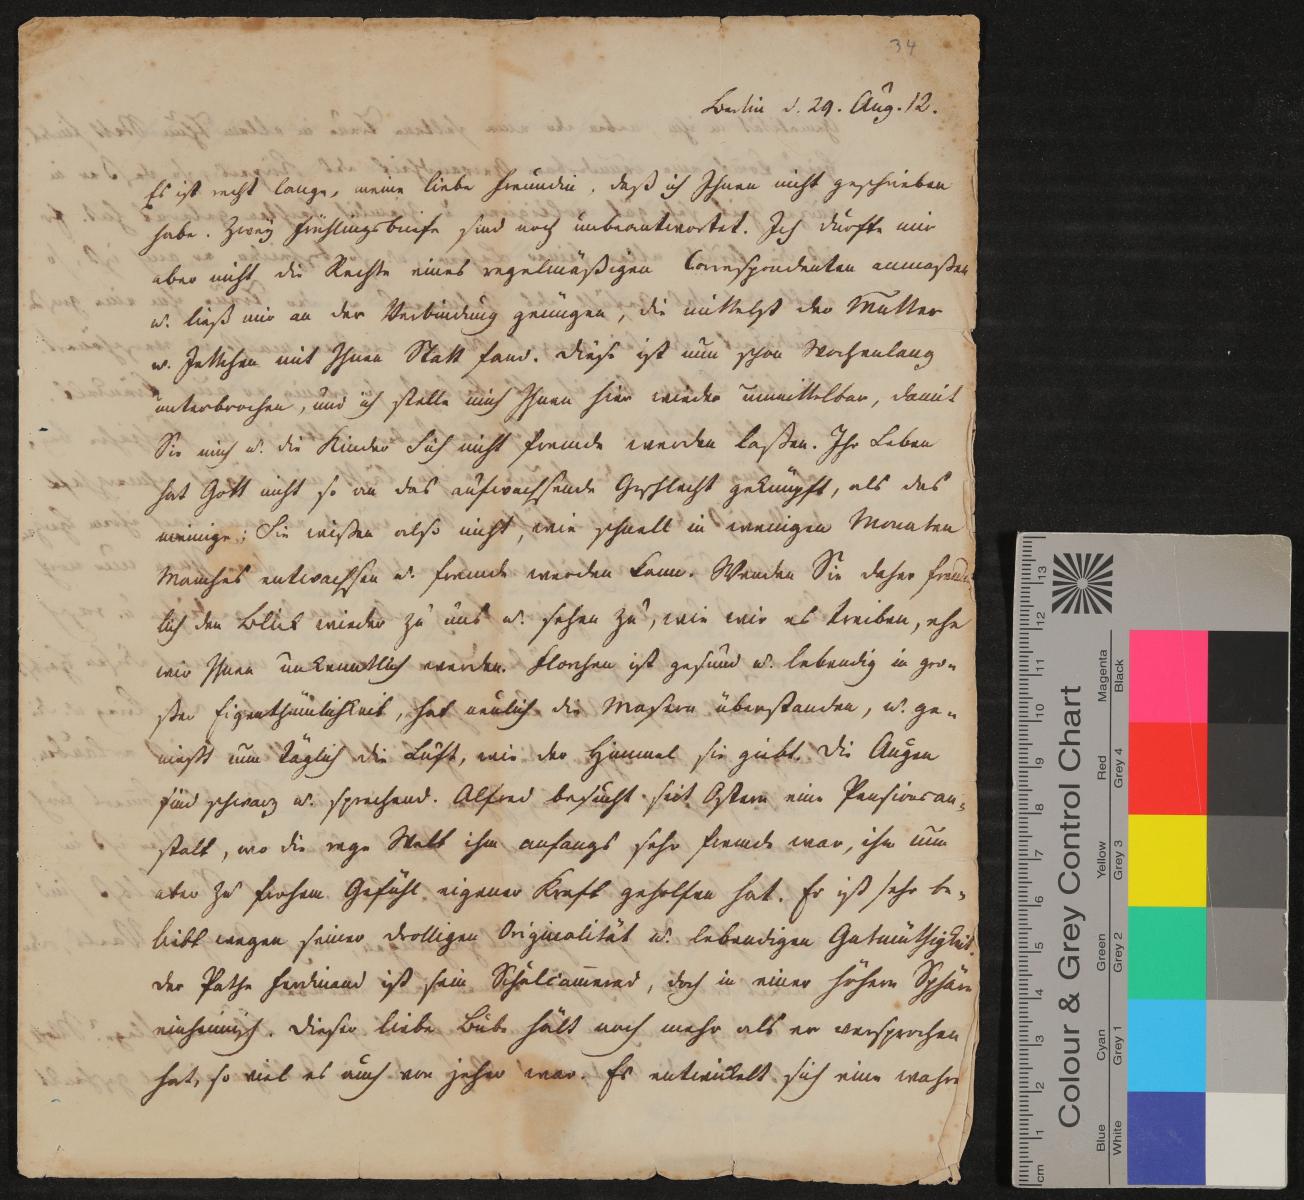 34
Berlin d. 29. Aug. 12.
Es ist recht lange, meine liebe Freundin, daß ich Ihnen nicht geschrieben
habe. Zwey Frühlingsbriefe sind noch unbeantwortet. Ich durfte mir
aber nicht die Rechte eines regelmäßigen Correspondenten anmaßen
u. ließ mir an der Verbindung genügen, die mittelst der Mutter
u. Jettchen mit Ihnen Statt fand. Diese ist nun schon Wochenlang
unterbrochen, und ich stelle mich Ihnen hier wieder unmittelbar, damit
Sie mich u. die Kinder Sich nicht fremde werden laßen. Ihr Leben
hat Gott nicht so an das aufwachsende Geschlecht geknüpft, als das
meinige; Sie wißen also nicht, wie schnell in wenigen Monaten
Manches entwachsen u. fremde werden kann. Wenden Sie daher freund
lich den Blick wieder zu uns u. sehen zu, wie wir es treiben, ehe
wir Ihnen unkenntlich werden. Klorchen ist gesund u. lebendig in gro-
ßer Eigenthümlichkeit, hat neulich die Masern überstanden, u. ge-
nießt nun täglich die Luft, wie der Himmel sie giebt. Die Augen
sind schwarz u. sprechend. Alfred besucht seit Ostern eine Pensionsan-
stalt, wo die rege Welt ihm anfangs sehr fremde war, ihm nun
aber zu frohem Gefühl eigener Kraft geholfen hat. Er ist sehr be-
liebt wegen seiner drolligen Originalität u. lebendigen Gutmüthigkeit.
Der Pathe Ferdinand ist sein Schulcamerad, doch in einer höhern Sphäre
einheimisch. Dieser liebe Bube hält noch mehr als er versprochen
hat, so viel es auch von jeher war. Es entwickelt sich eine wahre
Colour & Grey Control Chart
Blue Cyan Green Yellow Red Magenta
White Grey 1 Grey 2 Grey 3 Grey 4 Black
cm 1 2 3 4 5 6 7 8 9 10 11 12 13